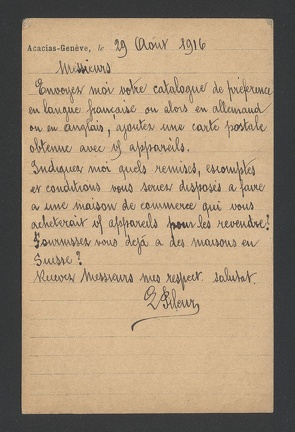 Acacias-Genève, le 29 Août 1916
Messieurs
Envoyez moi votre catalogue de préférence
en langue française ou alors en allemand
ou en anglais, ajoutez une carte postale
obtenue avec vs appareils.
Indiquez moi quels remises, escomptes
et conditions vous seriez disposés a faire
a une maison de commerce qui vous
acheterait vs appareils pour les revendre?
Fournissez vous dejà a des maisons en
Suisse?
Recevez Messieurs mes respect. salutat.